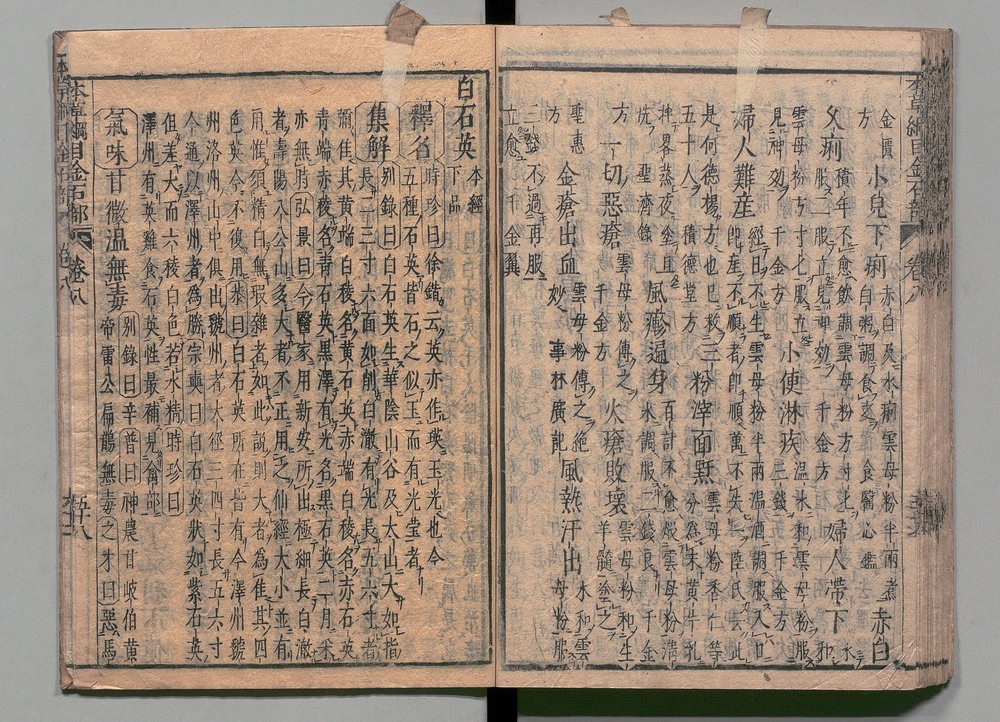 本草綱目金石部 卷八
金匱 小兒下痢 赤白及水痢雲母粉半兩煮
方 白粥調食之 食醫心鑑 赤白
久痢 積年不愈飲調雲母粉方寸匕
服二服立見神効 千金方 婦人帶下 水和
雲母粉方寸匕服立
見神効 千金方 小便淋疾 温水和雲母粉服
三錢 千金方
婦人難産 經日不生雲母粉半兩温酒調服入口
即産不順者即順萬不失一 陸氏云此
是何德揚方也已救三
五十人 積德堂方 粉滓面䵟 雲母粉杏仁等
分為末黃牛乳
拌畧蒸夜塗旦
洗 聖濟錄 風𤺋遍身 百計不愈煅雲母粉清
水調服二錢良 千金
方 一切惡瘡 雲母粉傅之
千金方 火瘡敗壞 雲母粉和生
羊髓塗之
聖惠
方 金瘡出血 雲母粉傅之絕
妙 事林廣記 風熱汗出 水和雲
母粉服
三錢不過再服
立愈 千金翼
白石英 本經
下品
釋名 時珍曰徐鍇云英亦作瑛玉光也今
五種石英皆石之似玉而有光瑩者
集解 别錄曰白石英生華陰山谷及太山大如指
長二三寸六面如削白澈有光長五六寸者
彌佳其黃端白稜名黃石英赤端白稜名赤石英
青端赤稜名青石英黑澤有光名黑石英二月采
亦無時弘景曰今醫家用新安所出極細長白澈
者壽陽八公山多大者不正用之仙經大小並有
用惟須精白無瑕雜者如此說則大者為佳其四
色英今不復用恭曰白石英所在皆有今澤州虢
州洛州山中俱出虢州者大徑三四寸長五六寸
今通以澤州者為勝宗奭曰白石英狀如紫石英
但差大而六稜白色若水精時珍曰
澤州有英雞食石英性最補見禽部
氣味 甘微温無毒 别錄曰辛普曰神農甘岐伯黃
帝雷公扁鵲無毒之才曰惡馬
本草綱目金石部 卷八